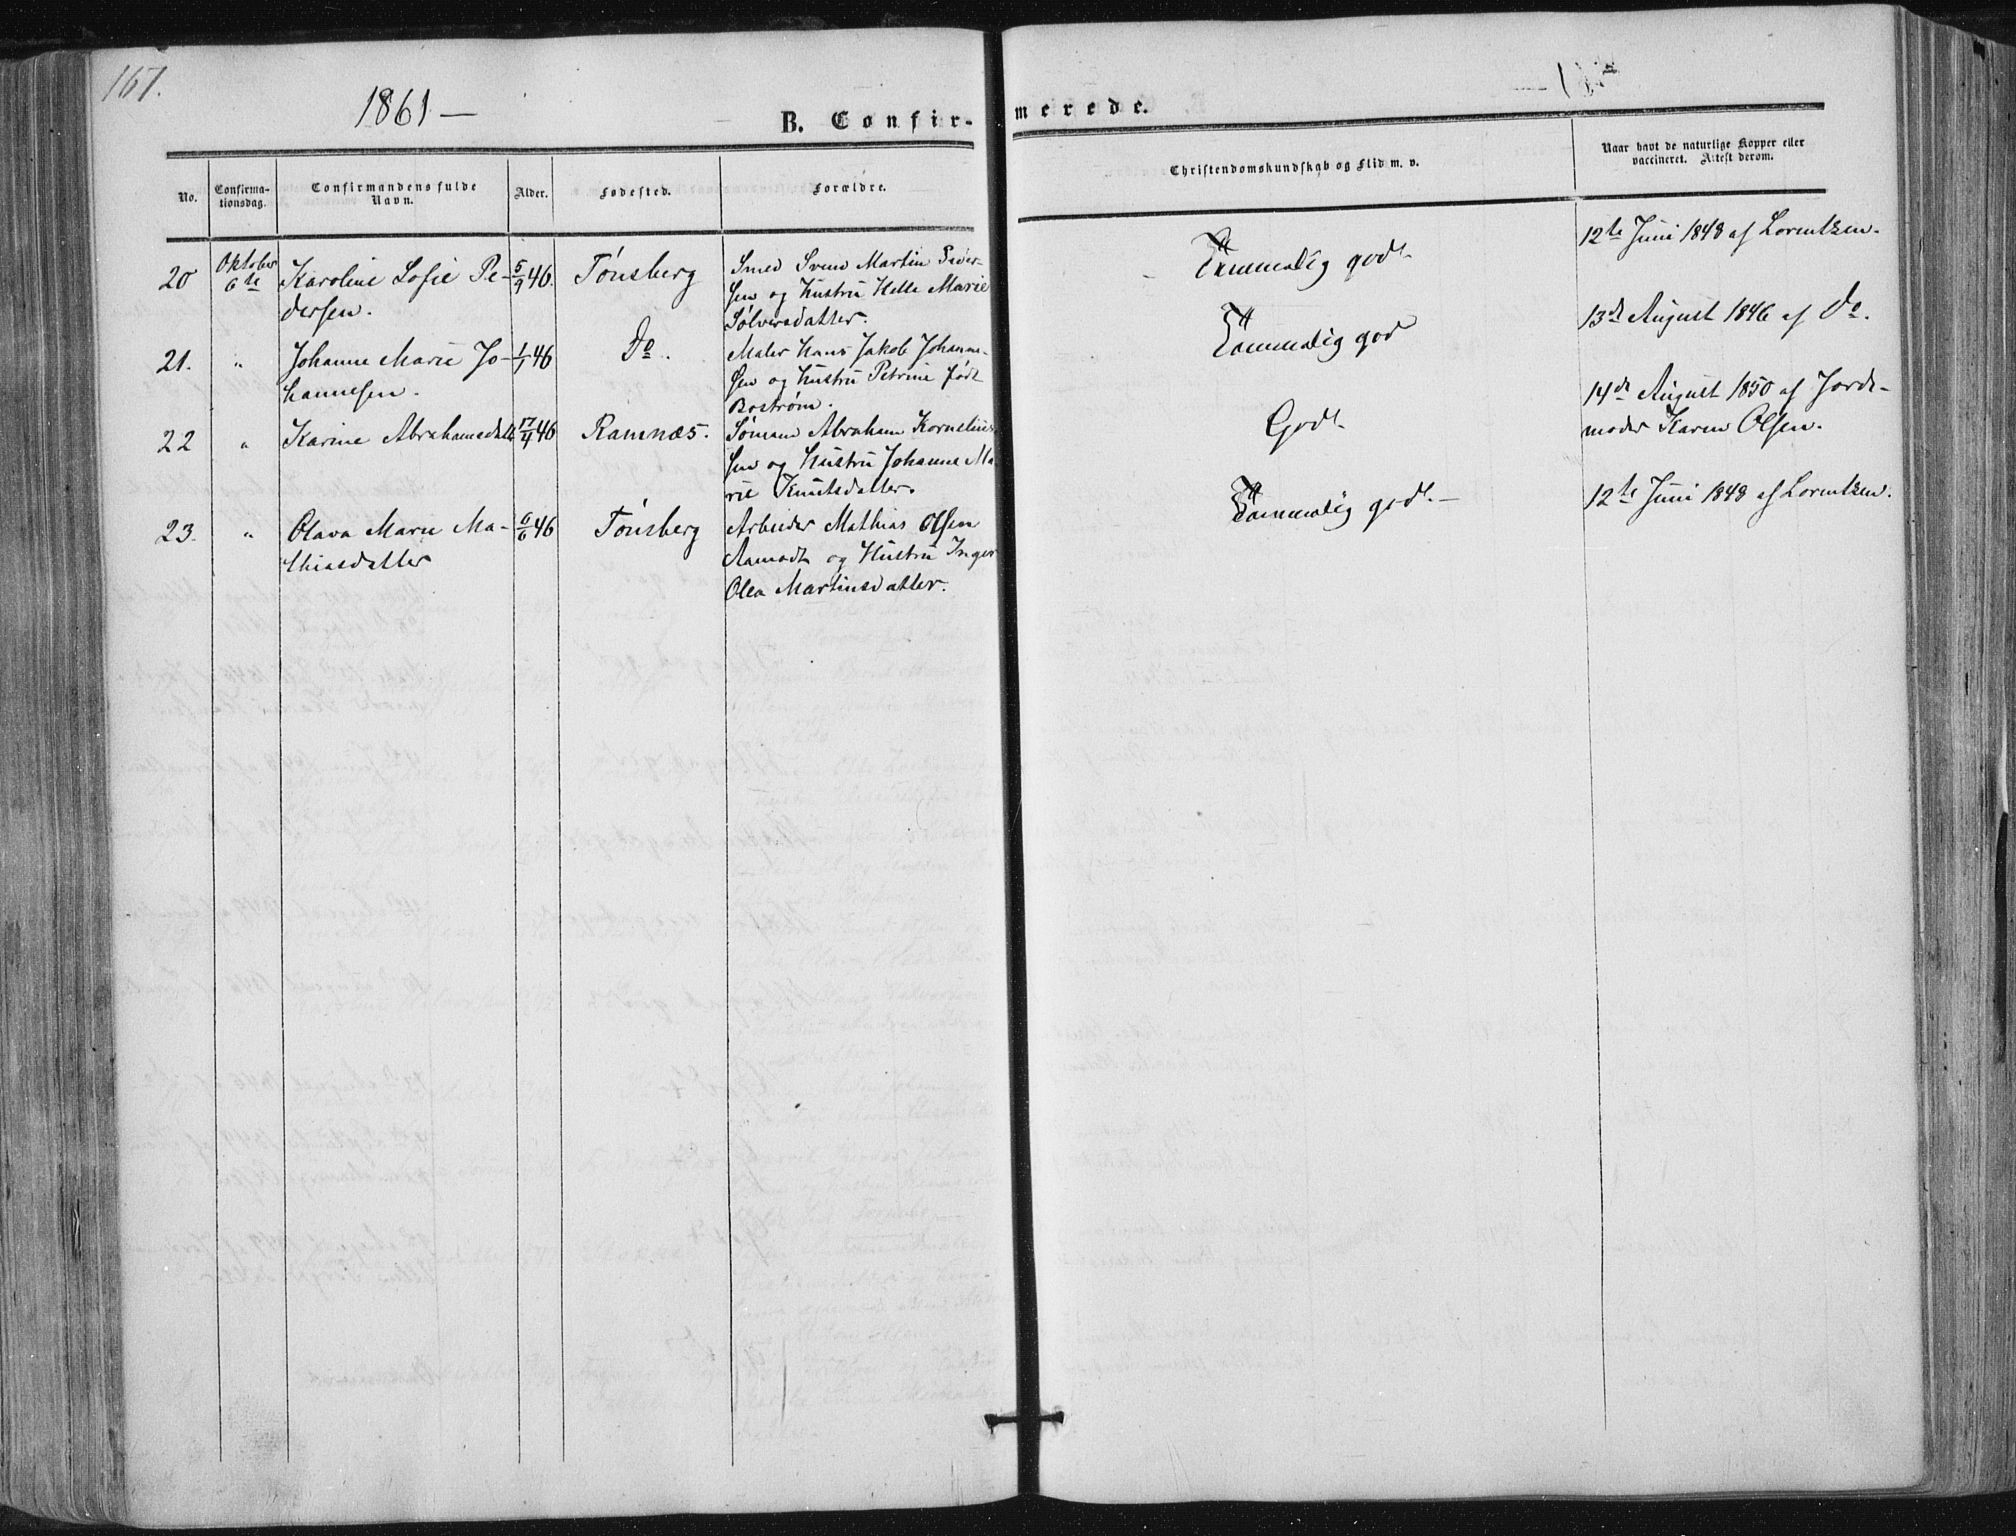 167.
1861 —
B. Confir-
merede.
No.
Confirma-
tionsdag.
Confirmandens fulde
Navn.
Alder.
Fødested.
Forældre.
Christendomskundskab og Flid m. v.
Naar havt de naturlige Kopper eller
vaccineret. Attest derom.
20 Oktober 6te Karoline Sofie Pe- 5/9 46. Tønsberg Smed Svend Martin Peder-
dersen. sen og Hustru Helle Marie
Sølversdatter.
Temmelig godt
12te Juni 1848 af Lorentzen.
21. " Johanne Marie Jo- 1/1 46 Do. Maler Hans Jakob Johanne-
hannesen. sen og Hustru Petrine født
Boström.
Temmelig god
13de August 1846 af Do.
22 " Karine Abrahamsdatt 17/4 46 Ramnæs. Sømand Abraham Kornelius-
sen og Hustru Johanne Ma-
rie Knutsdatter.
Godt
14de August 1850 af Jorde-
moder Karen Olsen.
23. " Olava Marie Ma- 6/6 46 Tønsberg Arbeider Mathias Olsen
thiasdatter Aamodt og Hustru Inger
Olea Martinsdatter.
Temmelig godt. —
12te Juni 1848 af Lorentzen.